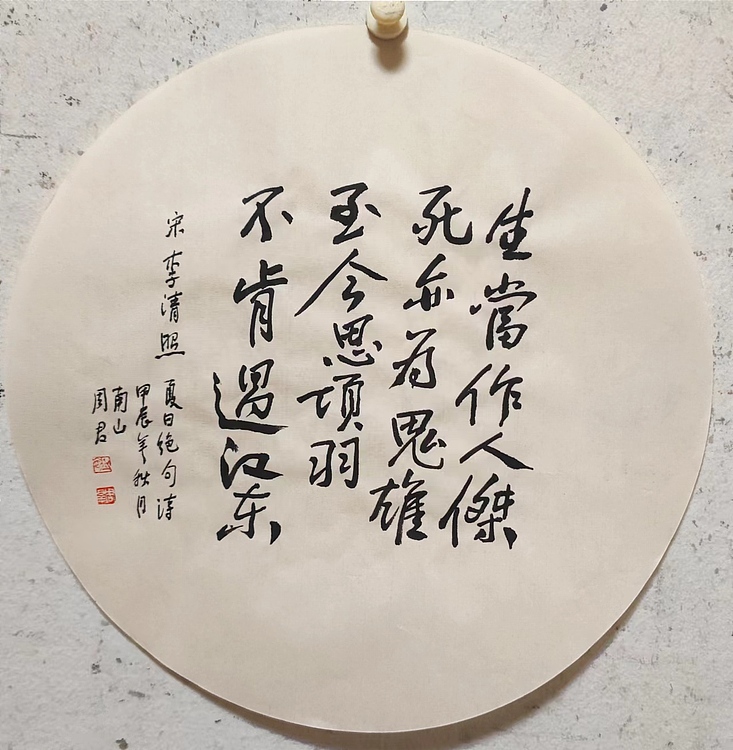 生當作人傑
死亦為鬼雄
至今思項羽
不肯過江东
宋李清照
夏日绝句诗
甲辰年秋月
南山
周君